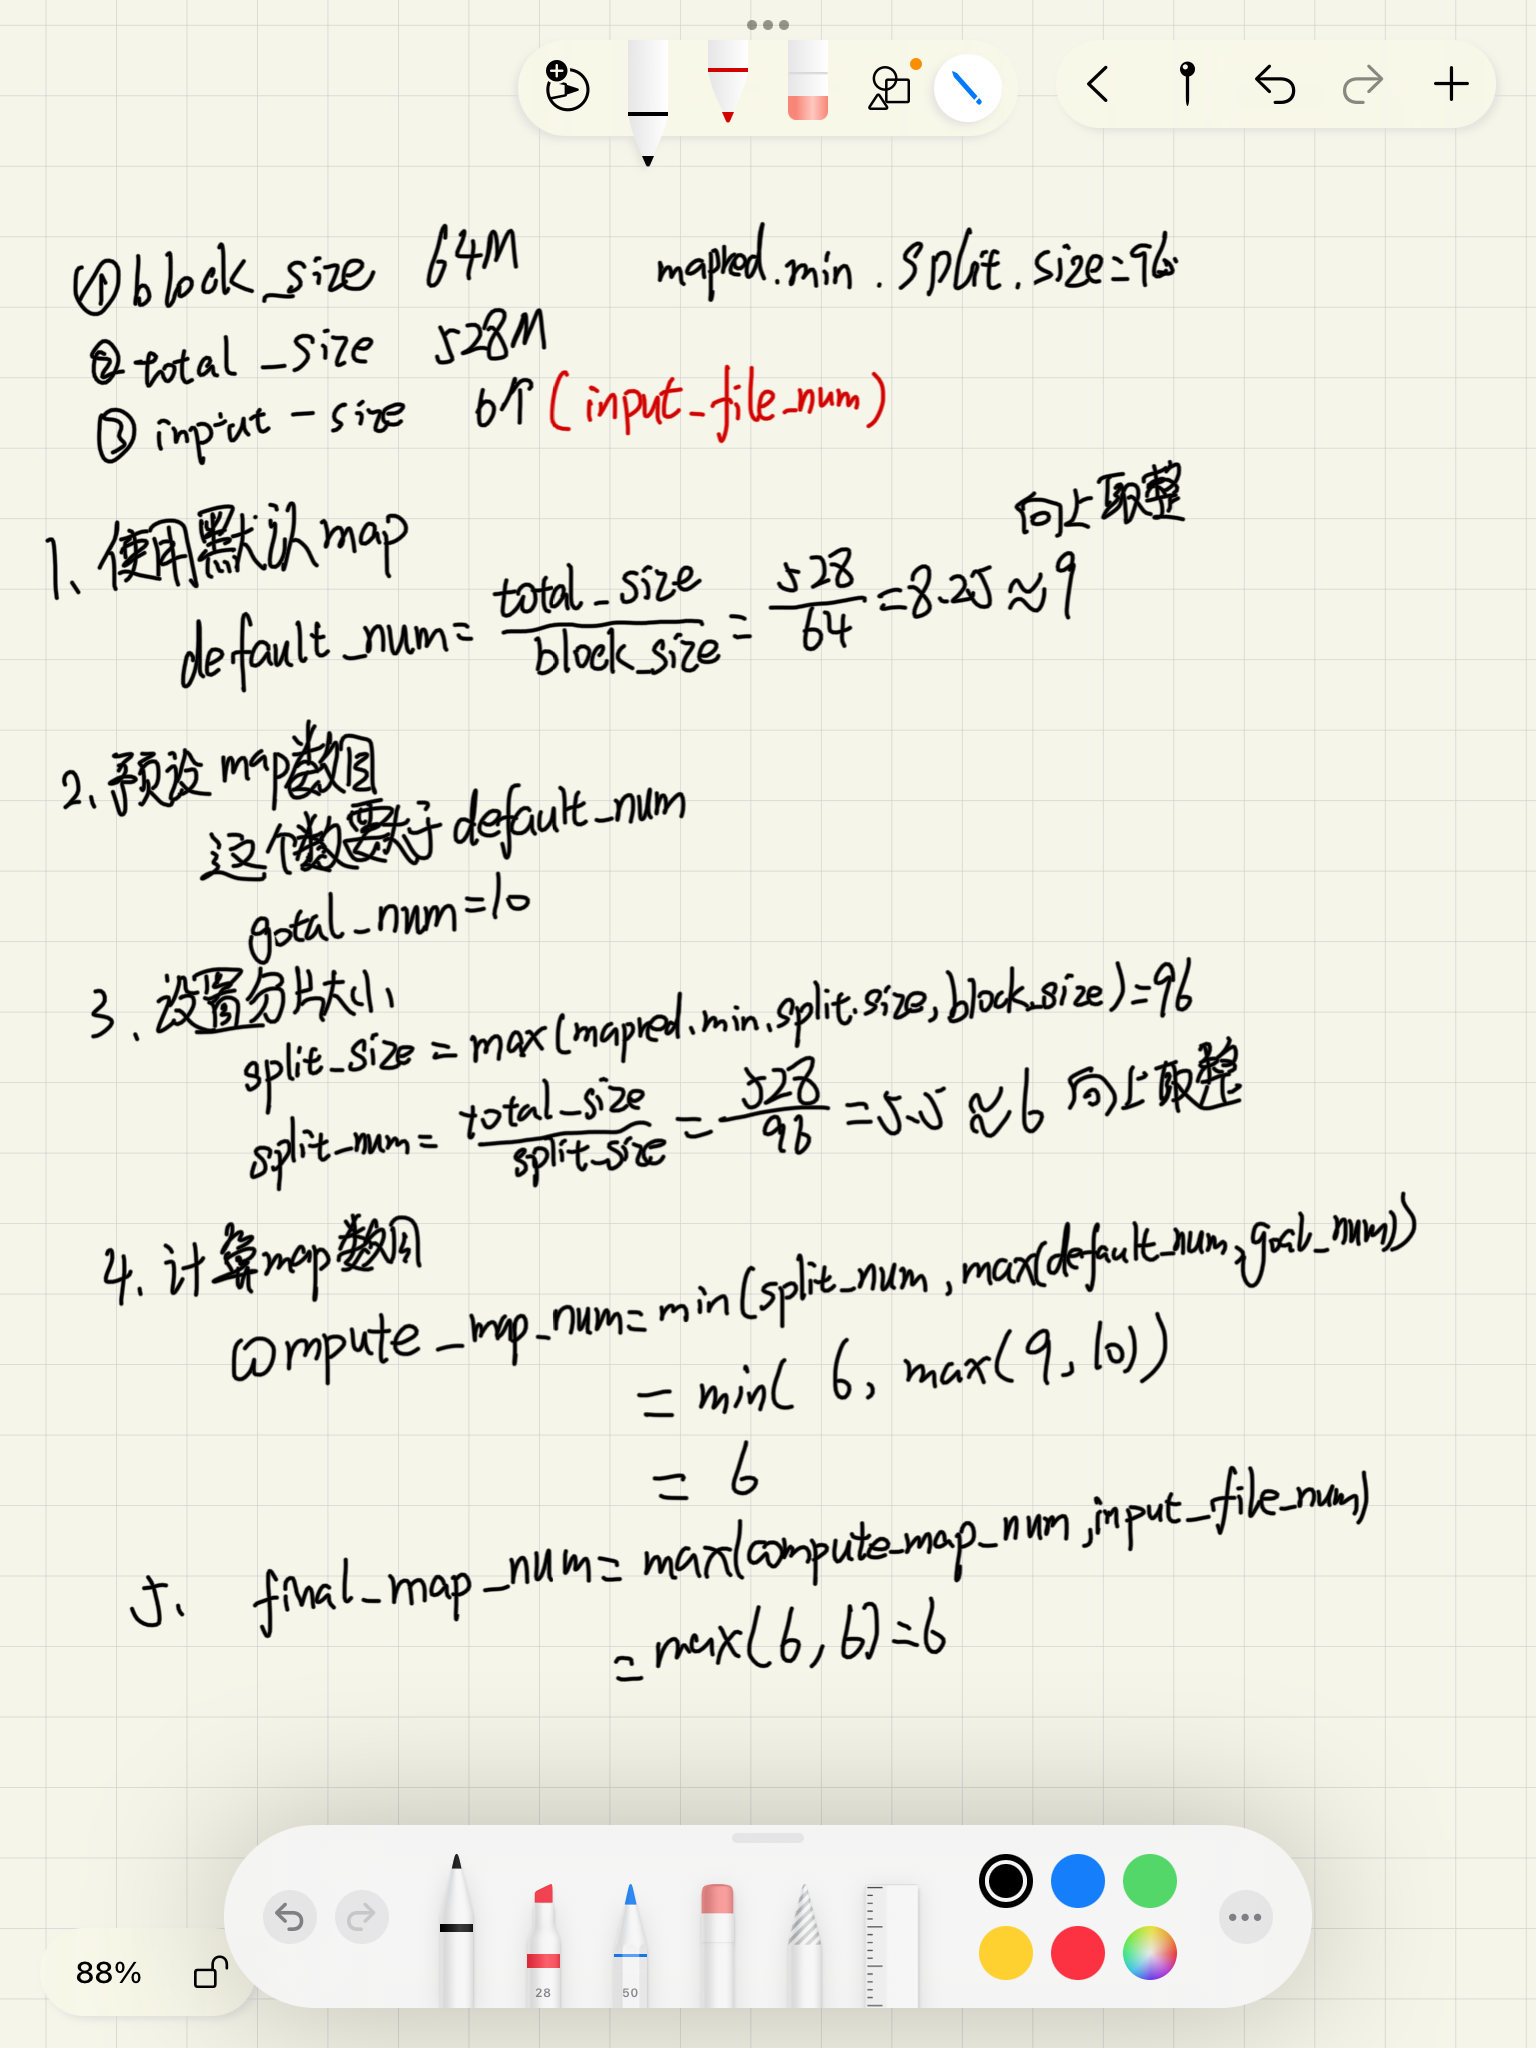 ① block_size 64M mapred.min.split.size=96
② total_size 528M
③ input-size 6个(input_file_num)
向上取整
1、使用默认map
default_num=total_size/block_size=528/64=8.25≈9
2、预设map数目
这个数要大于default_num
gotal_num=10
3、设置分片大小
split_size=max(mapred.min.split.size,block_size)=96
split_num=total_size/split_size=528/96=5.5≈6 向上取整
4、计算map数目
compute_map_num=min(split_num,max(default_num,goal_num))
=min(6,max(9,10))
=6
5、final_map_num=max(compute_map_num,input_file_num)
=max(6,6)=6
28
50
88%